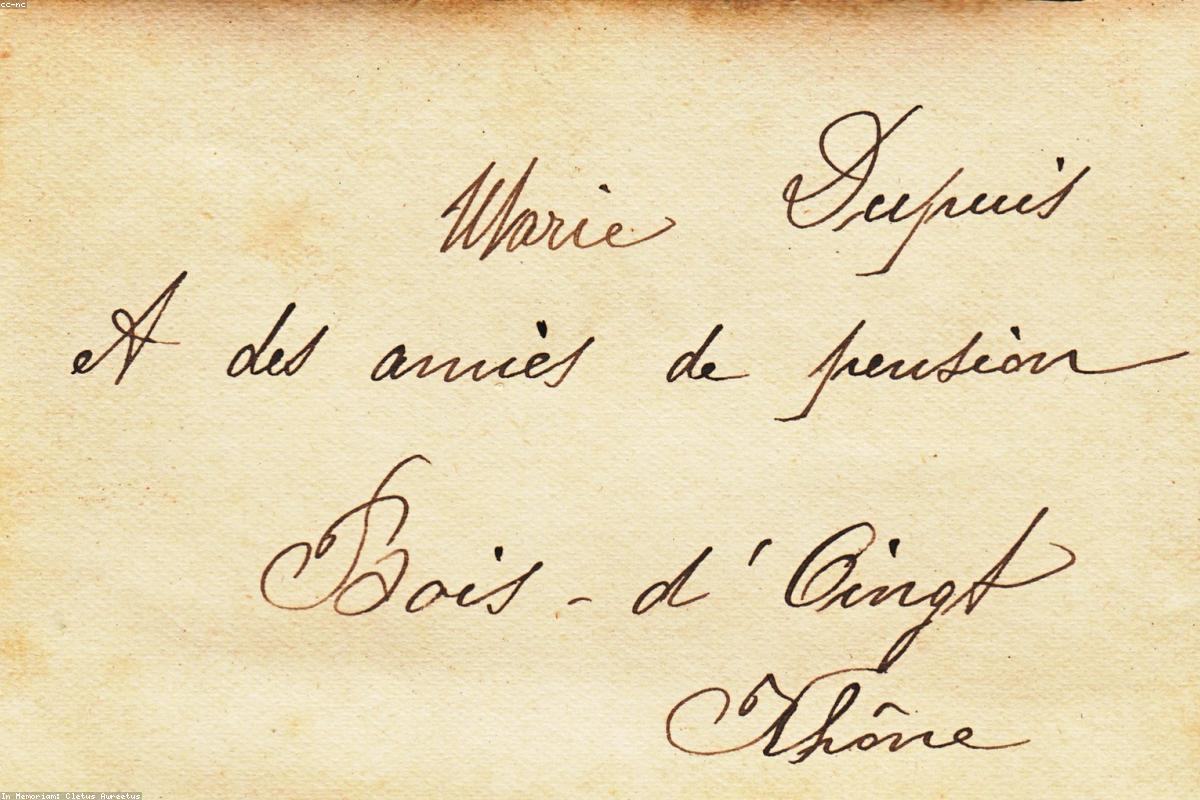 cc-nc
Marie Dupuis
A des amies de pension
Bois - d'Oingt
Rhône
In Memoriam: Cletus Aureetus